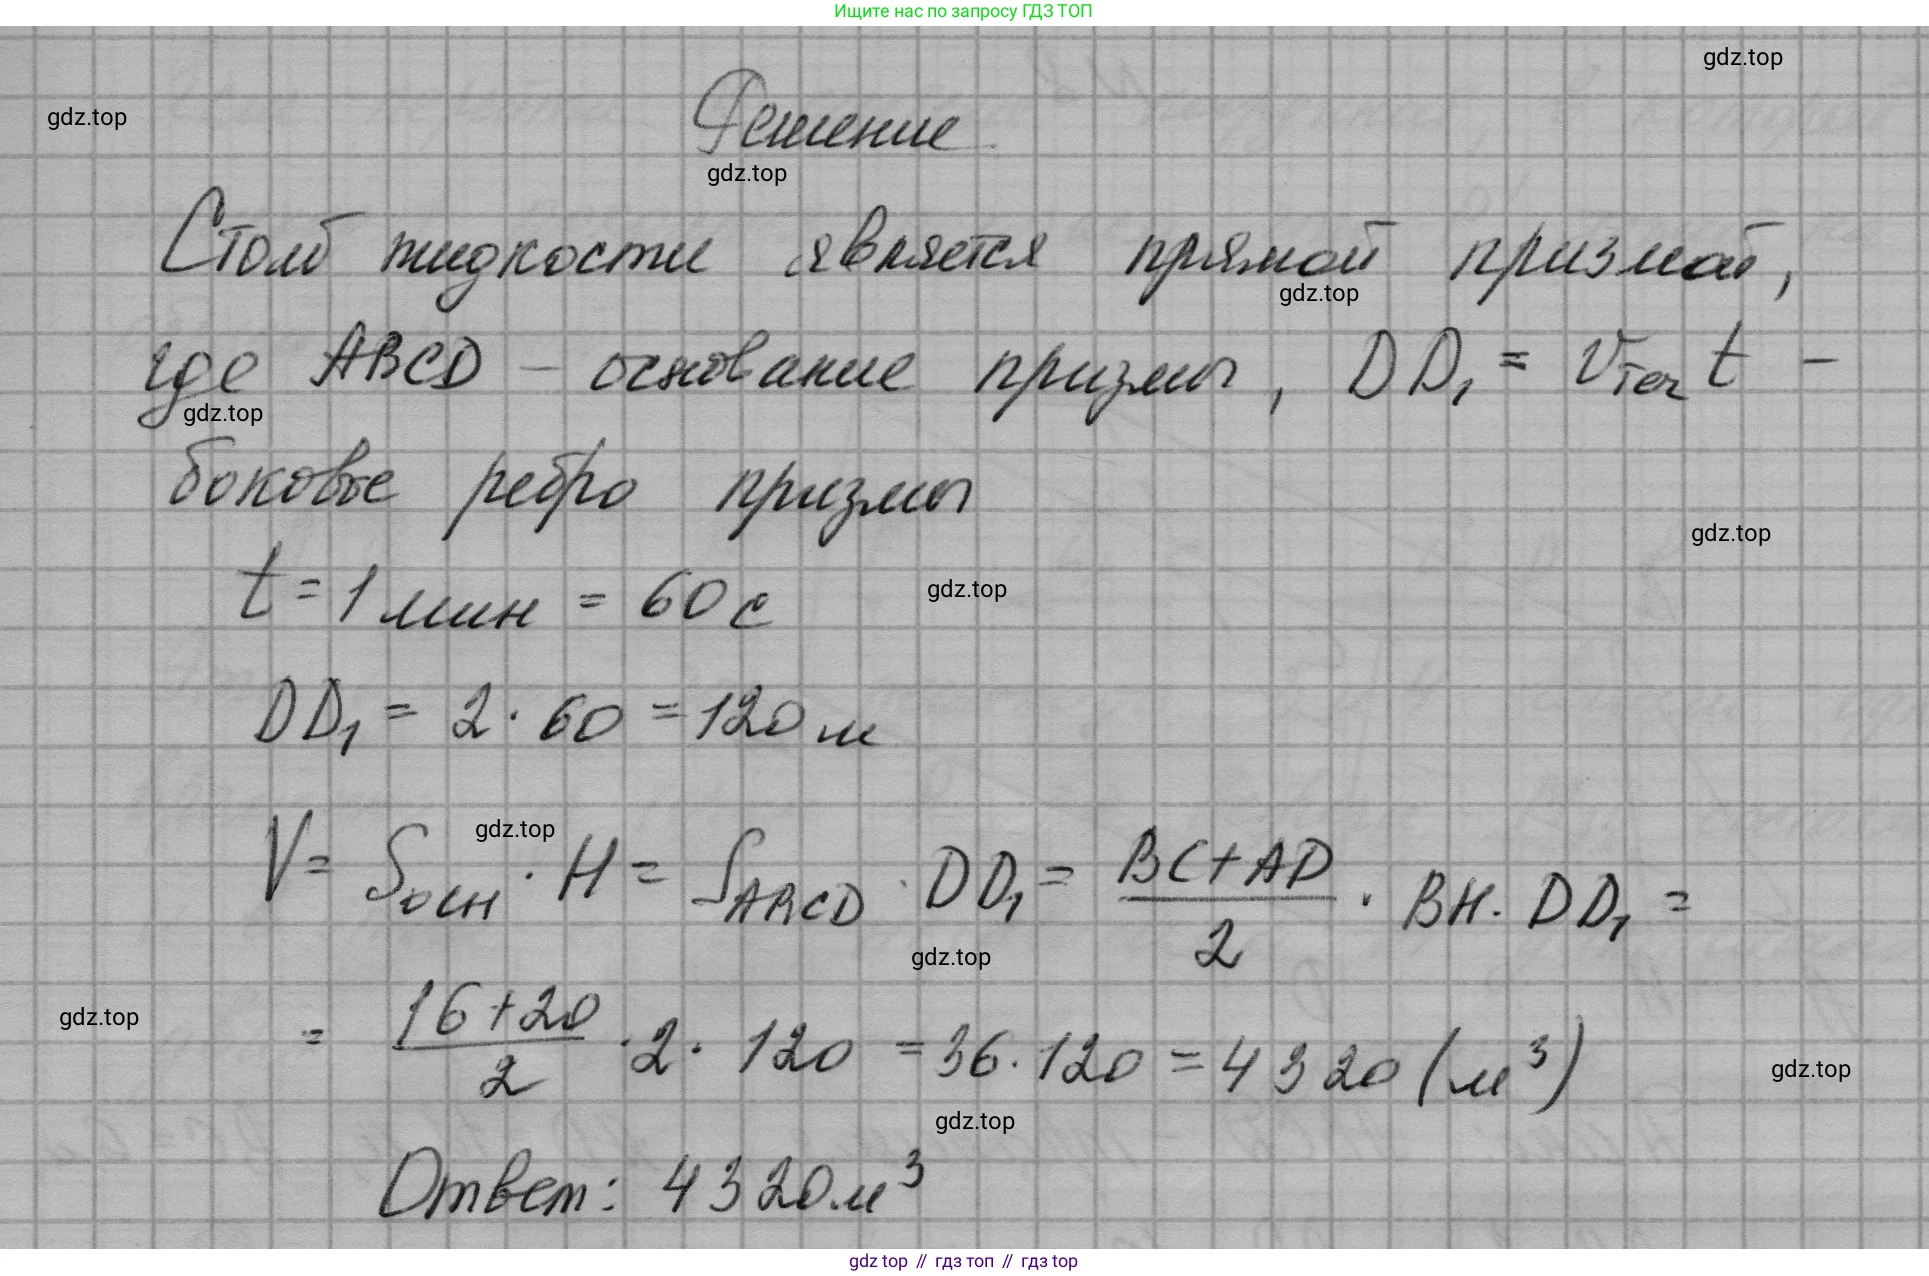 Ищите нас по запросу ГДЗ ТОП
gdz.top
gdz.top
Решение
gdz.top
Столб жидкости является прямой призмой,
gdz.top
где ABCD – основание призмы, DD₁ = vтеч t –
gdz.top
боковое ребро призмы
gdz.top
t = 1 мин = 60 с
gdz.top
DD₁ = 2 · 60 = 120 м
gdz.top
V = Sосн · H = SABCD · DD₁ = (BC+AD)/2 · BH · DD₁ =
gdz.top
gdz.top
= (16+20)/2 · 2 · 120 = 36 · 120 = 4320 (м³)
gdz.top
gdz.top
Ответ: 4320 м³
gdz.top // гдз топ // гдз top